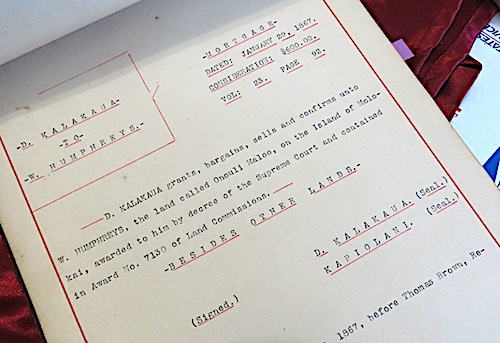 -MORTGAGE-
DATED: JANUARY 29, 1867.
CONSIDERATION: $600.00.
VOL: 23. PAGE 92.
-D. KALAKAUA-
-TO-
-W. HUMPHREYS.-
—D. KALAKAUA grants, bargains, sells and confirms unto
W. HUMPHREYS, the land called Onouli Maloo, on the Island of Molo-
kai, awarded to him by decree of the Supreme Court and contained
in Award No. 7130 of Land Commissions:—
-BESIDES OTHER LANDS.-
D. KALAKAUA. (Seal.)
(Signed.)
KAPIOLANI. (Seal.)
1867, before Thomas Brown, Re-